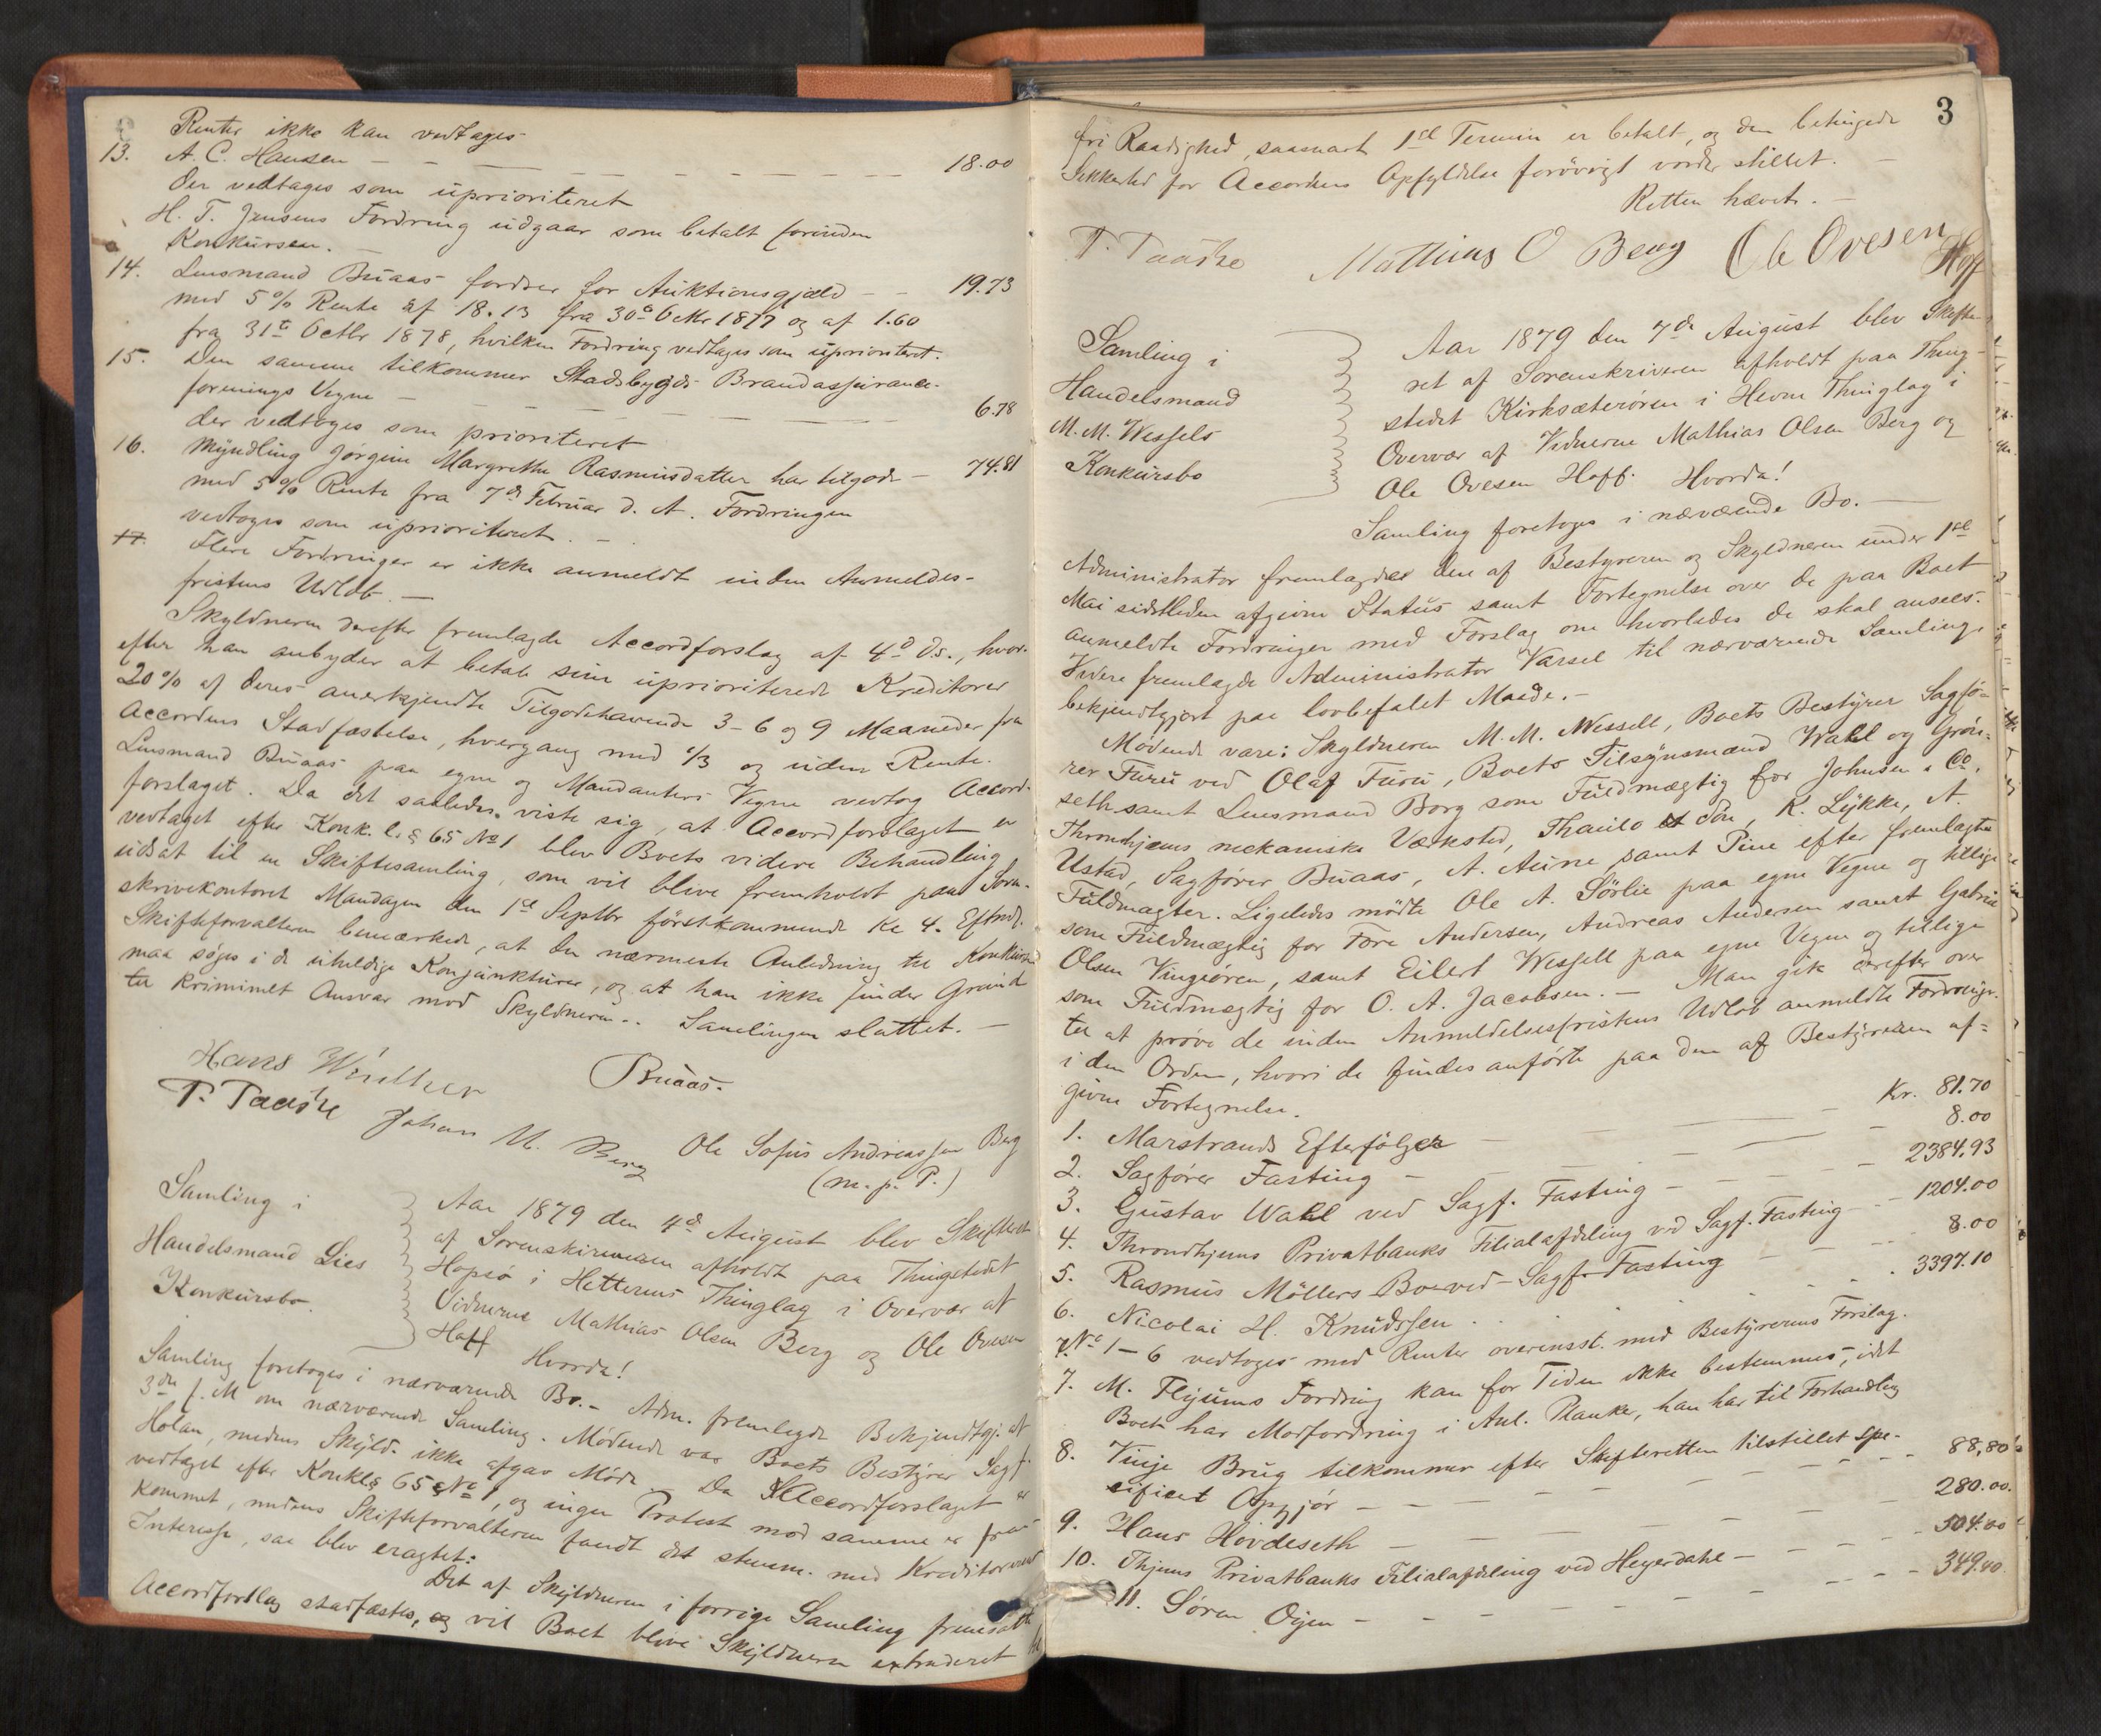 Renter ikke kan vedtages
13. A. C. Hansen - - - - - - - - - 18.00
der vedtages som uprioriteret
H. T. Jensens Fordring udgaar som betalt forinden
Konkursen. -
14. Lensmand Buaas fordrer for Auktionsgjæld - - 19.73
med 5% Rente af 18.13 fra 30te Octbr 1877 og af 1.60
fra 31te Octbr 1878, hvilken Fordring vedtages som uprioriteret.
15. Den samme tilkommer Stadsbygds Brandassurance-
forenings Vegne - - - - - - - - 6.78
der vedtages som prioriteret
16. Myndling Jørgine Margrethe Rasmusdatter har tilgode - 74.81
med 5% Rente fra 7de Februar d. A. Fordringen
vedtages som uprioriteret. -
17. Flere Fordringer er ikke anmeldt inden Anmeldes-
fristens Udløb. -
Skyldneren derefter fremlagde Accordforslag af 4de ds., hvor-
efter han anbyder at betale sine uprioriterede Kreditorer
20% af deres anerkjendte Tilgodehavende 3-6 og 9 Maaneder fra
Accordens Stadfæstelse, hvergang med 1/3 og uden Rente.
Lensmand Buaas paa egne og Mandanters Vegne vedtog Accord-
forslaget. Da det saaledes viste sig, at Accordforslaget er
vedtaget efter Konk. l. § 65 No 1 blev Boets videre Behandling
udsat til en Skiftesamling, som vil blive fremholdt paa Soren-
skriverkontoret Mandagen den 1ste Septbr førstkommende Kl 4. Eftmd.
Skifteforvalteren bemærkede, at den nærmeste Anledning til Konkursen
maa søges i de uheldige Konjunkturer, og at han ikke finder Grund
til kriminelt Ansvar mod Skyldneren. - Samlingen sluttet. -
Hans Winther Buaas.
P. Taaske Johan M. Berg Ole Sofus Andreassen Berg
(m. p. P.)
Samling i
Handelsmand Lies
Konkursbo.
Aar 1879 den 4de August blev Skifteret
af Sorenskriveren afholdt paa Thingstedet
Hopsø i Hitterens Thinglag i Overvær af
Vidnerne Mathias Olsen Berg og Ole Ovesen
Hoff Hvorda!
Samling foretoges i nærværende Bo. - Adm. fremlagde Bekjendtgj. af
3die f. M om nærværende Samling. Mødende var Boets Bestyrer Sagf.
Holan, medens Skyld. ikke afgav Møde. Da Accordforslaget er
vedtaget efter Konkl. § 65 No 1, og ingen Protest mod samme er frem-
kommet, medens Skifteforvalteren fandt det stemm. med Kreditorernes
Interesse, saa blev eragtet:
Det af Skyldneren i forrige Samling fremsatte
Accordforslag stadfæstes, og vil Boet blive Skyldneren extraderet til
3
fri Raadighed, saasnart 1ste Termin er betalt, og den betingede
Sikkerhed for Accordens Opfyldelse forøvrigt vorder stillet. -
Retten hævet. -
P. Taaske Mathias O Berg Ole Ovesen Hoff
Samling i
Handelsmand
M. M. Wessels
Konkursbo
Aar 1879 den 7de August blev Skifte-
ret af Sorenskriveren afholdt paa Thing-
stedet Kirksæterøren i Hevne Thinglag i
Overvær af Vidnerne Mathias Olsen Berg og
Ole Ovesen Hoff. Hvorda!
Samling foretoges i nærværende Bo. -
Administrator fremlagde den af Bestyreren og Skyldneren under 1ste
Mai sidstleden afgivne Status samt Fortegnelse over de paa Boet
anmeldte Fordringer med Forslag om hvorledes de skal ansees.
Videre fremlagde Administrator Varsel til nærværende Samling
bekjendtgjort paa lovbefalet Maade. -
Mødende vare: Skyldneren M. M. Wessell, Boets Bestyrer Sagfø-
rer Furu ved Olaf Furu, Boets Tilsynsmænd Wahl og Grøn-
seth samt Lensmand Borg som Fuldmægtig for Johnsen & Co,
Throndhjems mekaniske Værksted, Thaulo & Søn, K. Lykke, A.
Ustad, Sagfører Buaas, A. Aune samt Pine efter fremlagte
Fuldmagter. Ligeledes mødte Ole A. Sørlie paa egne Vegne og tillige
som Fuldmægtig for Tore Andersen, Andreas Andersen samt Gabriel
Olsen Vingøren, samt Eilert Wessell paa egne Vegne og tillige
som Fuldmægtig for O. A. Jacobsen. - Man gik derefter over
til at prøve de inden Anmeldelsesfristens Udløb anmeldte Fordringer
i den Orden, hvori de findes anførte paa den af Bestyreren af-
givne Fortegnelse.
1. Marstrands Efterfølger - - - Kr. 81.70
2. Sagfører Fasting - - - 8.00
3. Gustav Wahl ved Sagf. Fasting - - - 2384.93
4. Throndhjems Privatbanks Filialafdeling ved Sagf. Fasting - 1204.00
5. Rasmus Møllers Bo ved Sagf. Fasting - - - 8.00
6. Nicolai H. Knudssen . . . . . . 3397.10
No 1-6 vedtoges med Renter overensst. med Bestyrerens Forslag.
7. M. Flyums Fordring kan for Tiden ikke bestemmes, idet
Boet har Modfordring i Anl. Planker, han har til Forhandling
8. Vinje Brug tilkommer efter Skifteretten tilstillet spe-
cificet Opgjør - - - - - - - 88,80
9. Hans Hovdeseth - - - - - 280.00.
10. Thjems Privatbanks Filialafdeling ved Heyerdahl - - - 504.00
11. Søren Oien - - - - - - - 349.40